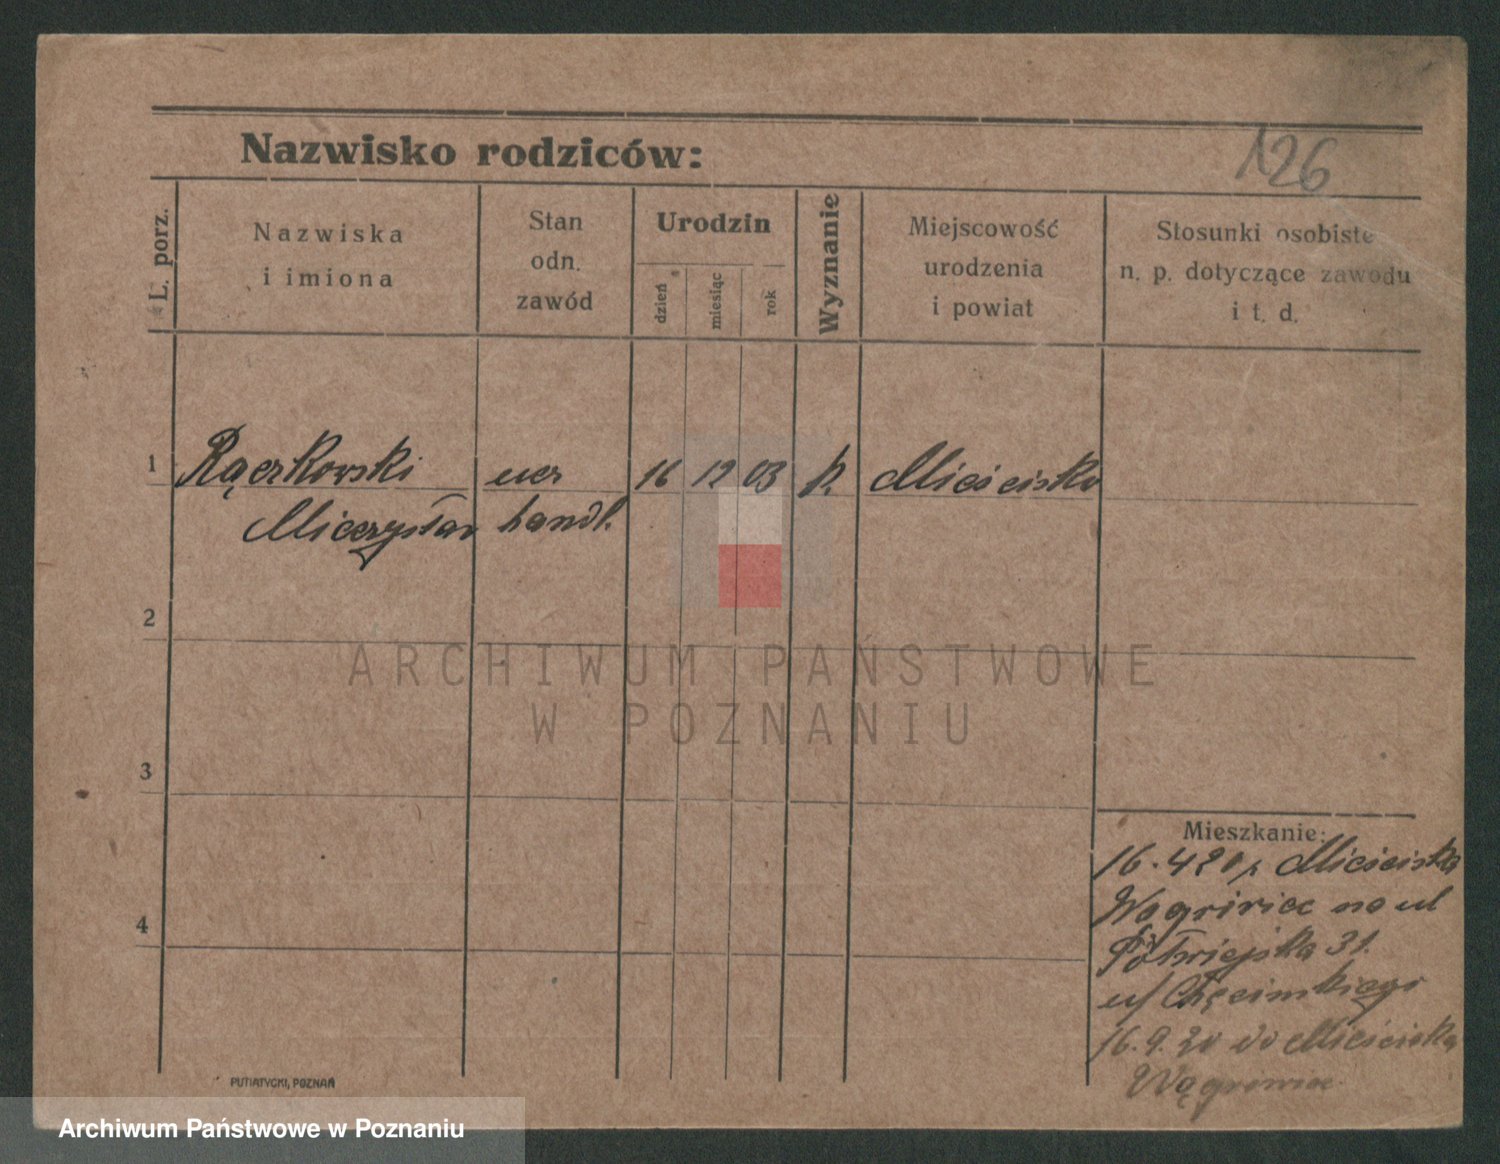 Nazwisko rodziców:
126
L. porz.
Nazwiska
i imiona
Stan
odn.
zawód
Urodzin
dzień
miesiąc
rok
Wyznanie
Miejscowość
urodzenia
i powiat
Stosunki osobiste
n. p. dotyczące zawodu
i t. d.
1 Rączkowski ucz 16 12 03 k. Mieścisko
Mieczysław handl.
2
3
4
Mieszkanie:
16.4 20 Mieściska
Wągrowiec na ul
Półwiejska 31.
16.9.20 do Mieściska
Wągrowiec
PUTIATYCKI, POZNAŃ
ARCHIWUM PAŃSTWOWE
W POZNANIU
Archiwum Państwowe w Poznaniu